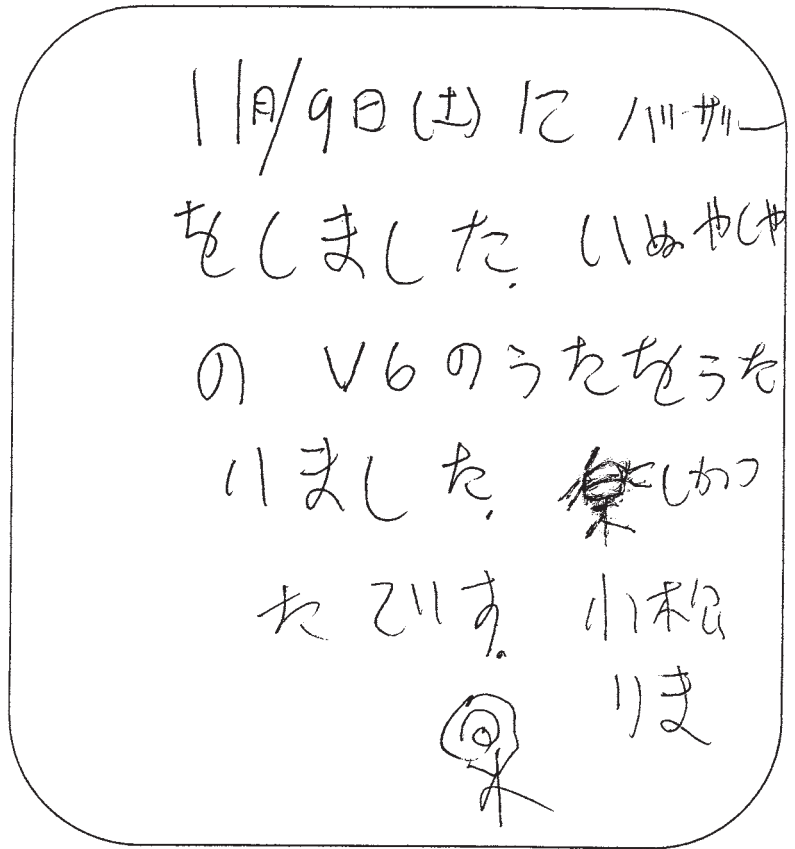 11月/9日(土)に バーザー
をしました. いぬやしゃ
の V6のうたをうた
いました. 楽しかっ
たです. 小松
りま